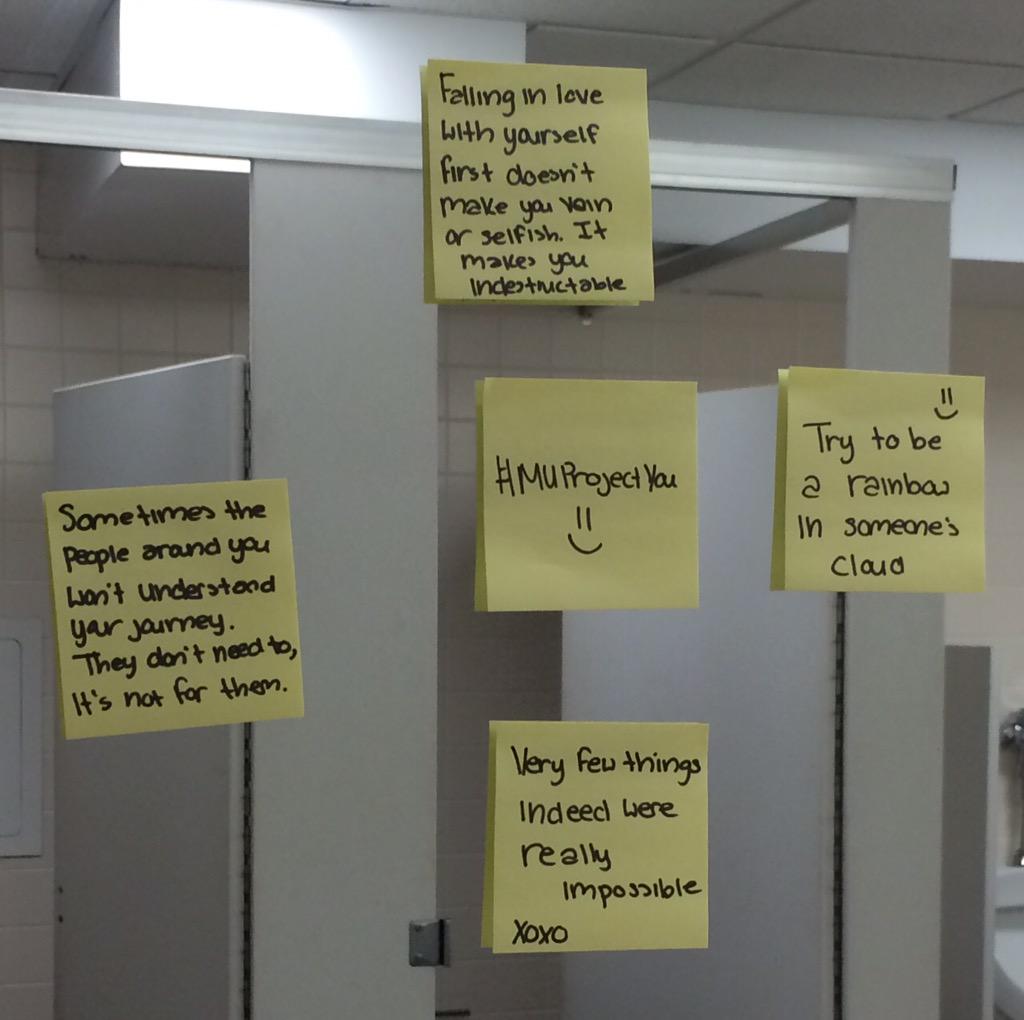 Falling in love
with yourself
first doesn't
make you vain
or selfish. It
makes you
indestructable
#MUProjectYou
Try to be
a rainbow
in someone's
cloud
Sometimes the
people around you
won't understand
your journey.
They don't need to,
It's not for them.
Very few things
indeed were
really
impossible
xoxo